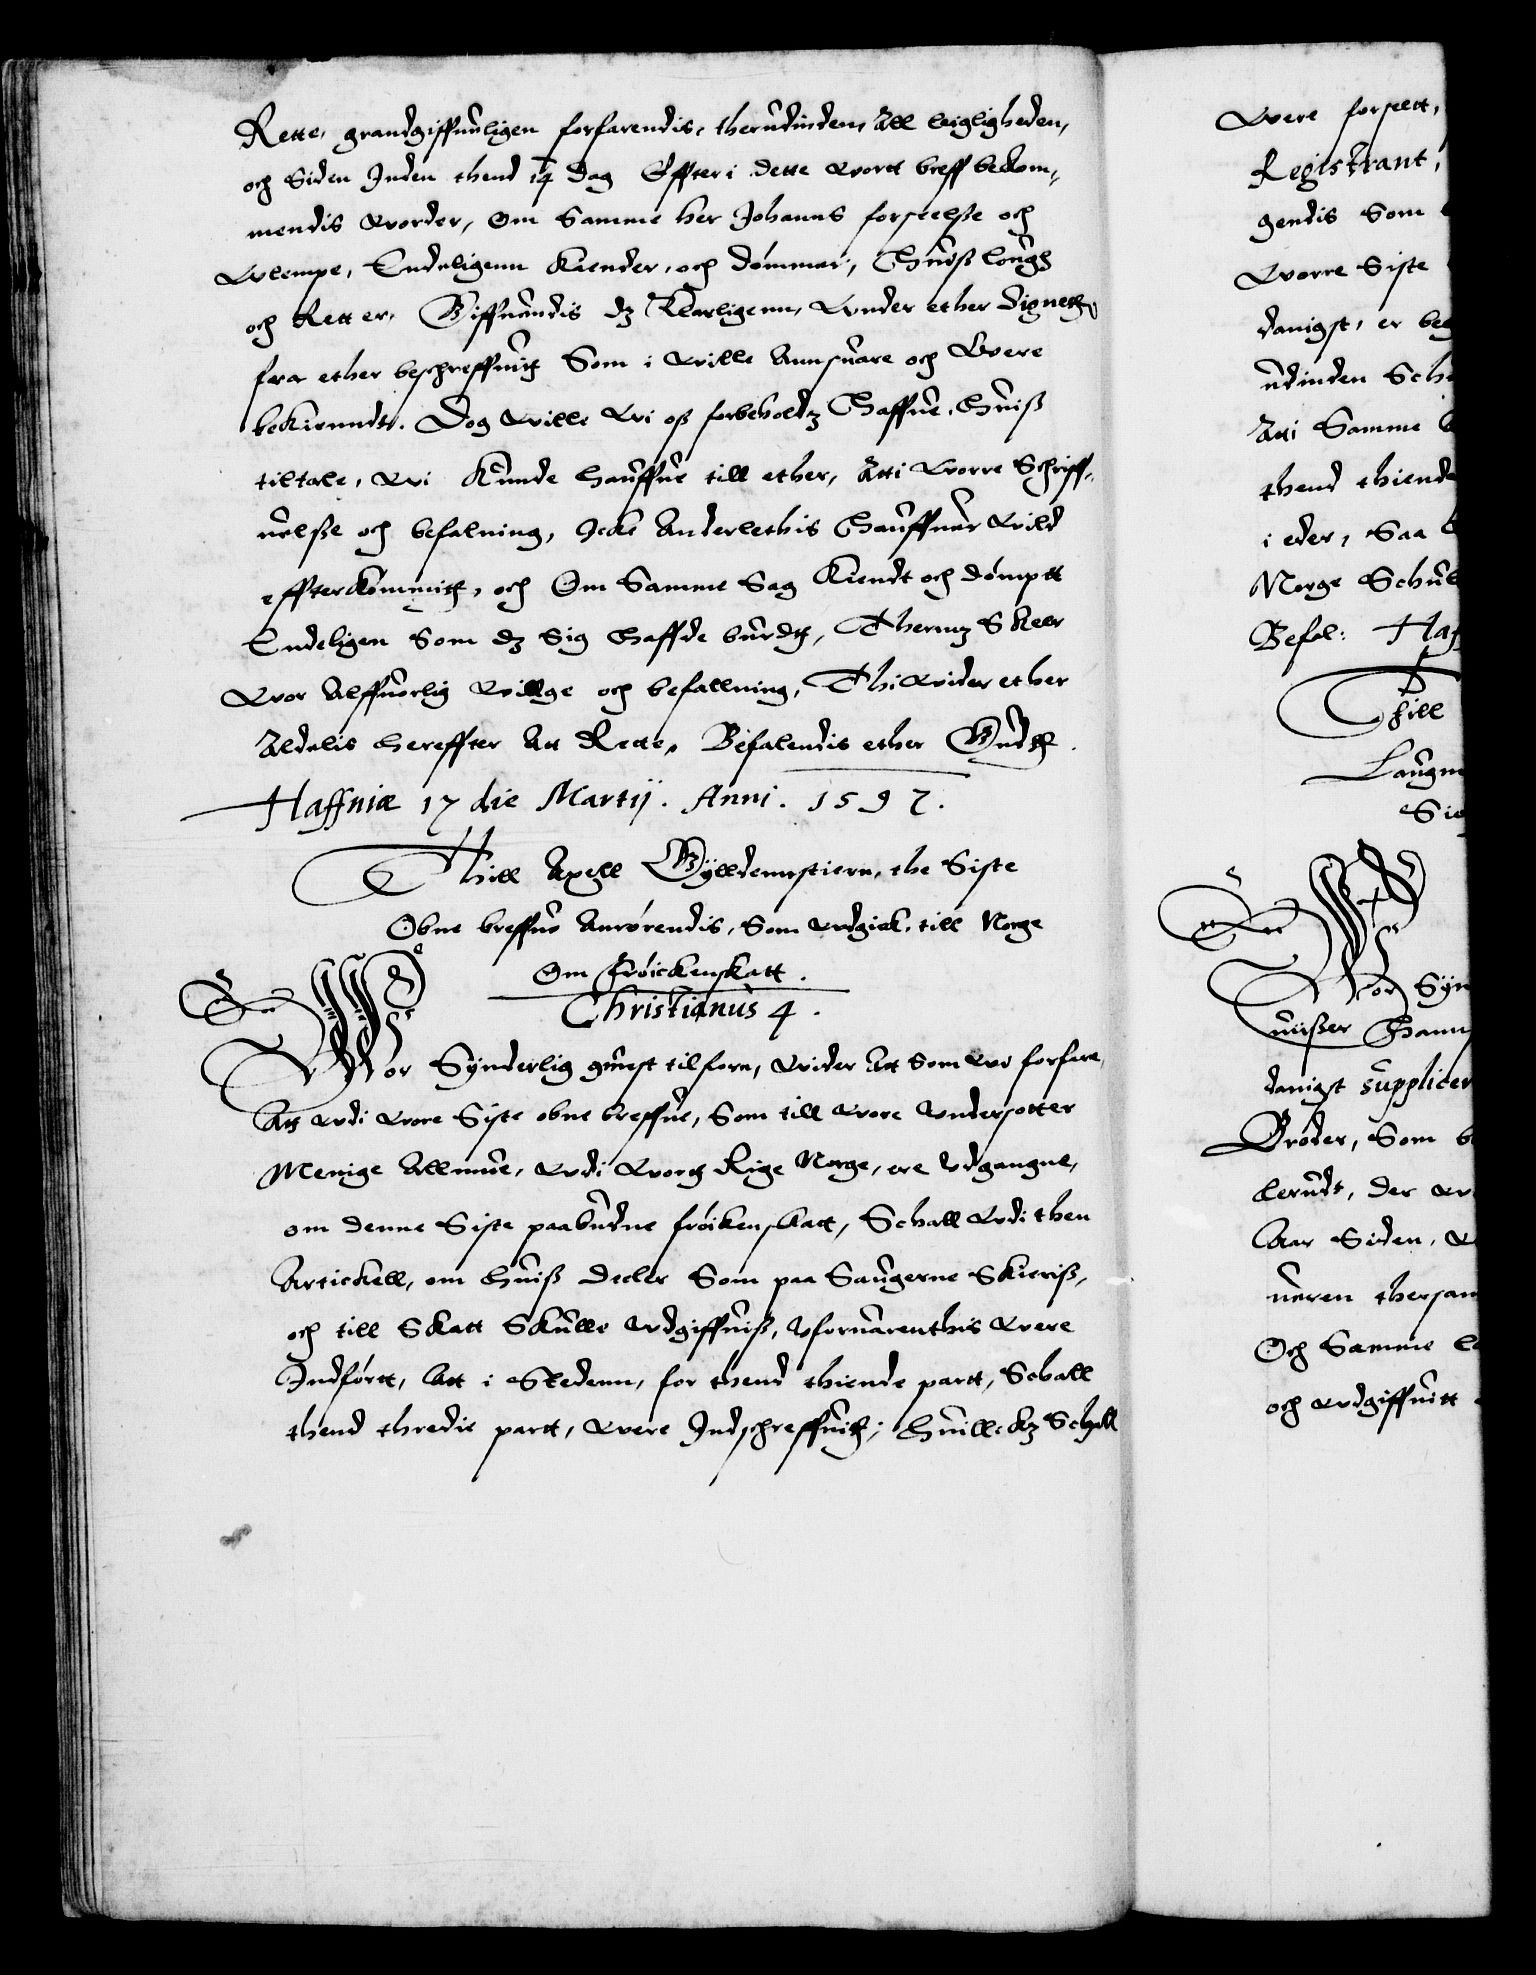 Rette, grandgiffuuligen forfarendis, therudinden, All leigligheden,
och Siden Inden thend 14 Dag Effter i dette wort breff bekom,,
mendis worder, Om Samme her Johanns forseelße och
wlempe, Endeligenn Kiender, och dømmer, Huadß lough
och Rett er, Giffuendis dz Klarligenn, Wnder ether Signetth,
fraa ether beschreffuitt Som i wille Annsuare och Were
bekiendt. Dog wille Wi oß forbeholdz Haffue, Huiß
tiltale, Wi Kunde Hauffue till ether, Att i Worre Schriff,,
uelße och befalning, Icke Anderlethis Hauffuer Wild
effterkommitt, och Om Samme Sag Kiendt och dømptt
Endeligen Som dz Sig Haffde burdt, Thermz Skeer
Wor Alffuorlig Willge och befallning, Thi Wider ether
Aldelis hereffter Att Rette, Befalendis ether Gudt.
Haffniæ 17 die Martij. Anni. 1597.
Thill Axell Gylldennstiern, the Siste
Obne breffue Anrørendis, Som Wdgick, till Norge
Om frøickenskatt.
Christianus 4.
Wor Synderlig gunst tilforn, Wider Att Som Wi forfare,
Att Wdi Wore Siste obne breffue, Som till Wore Vndersotter
Menige Allmue, Wdi Wortt Rige Norge, ere Vdgangne,
om denne Siste paabudne frøikenskatt, Schall Wdi then
Artickell, om huiß Deeler Som paa Saugerne Skieriß,
och till Skatt Skulle Wdgiffuiß, Vforuarenthis Were
Indførtt, Att i Stedenn, for thend thiende partt, Schall
thend thredie partt, Were Indschreffuitt, Huillckz Schall
Were forseett,
Registrant,
gendis Som
Worre Siste
danigst, er beg
udinden Sch
Att i Samme
thend thiende
i eder, Saa
Norge Schul
Befal: Haf
Thill
Laugm
Wor Syn
uißer Hann
danigst supplicer
Brøder, Som b
Aar Siden,
Och Samme
och Wdgiffuitt